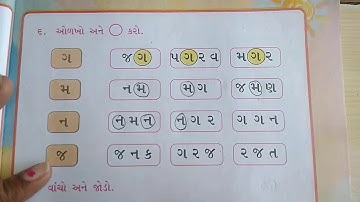 ૬. ઓળખો અને ◯ કરો.
ગ જગ પગરવ મગર
મ નમ મગ જમણ
ન નમન નગર ગગન
જ જનક ગરજ રજત
વાંચો અને જોડો.